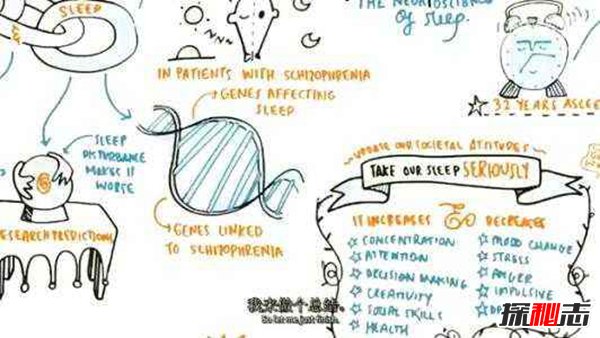 SLEEP
THE NEUROSCIENCE
OF SLEEP.
IN PATIENTS WITH SCHIZOPHRENIA
GENES AFFECTING
SLEEP
32 YEARS ASLEE
SLEEP
DISTURBANCE
MAKES IT
WORSE
UPDATE OUR SOCIETAL ATTITUDES
TAKE OUR SLEEP SERIOUSLY
GENES LINKED
TO SCHIZOPHRENIA
RESEARCH PREDICTIONS
IT INCREASES
CONCENTRATION
ATTENTION
DECISION MAKING
CREATIVITY
SOCIAL SKILLS
HEALTH
DECREASES
MOOD CHANGE
STRESS
ANGER
IMPULSIVE
我来做个总结。
So let me just finish.
探秘志